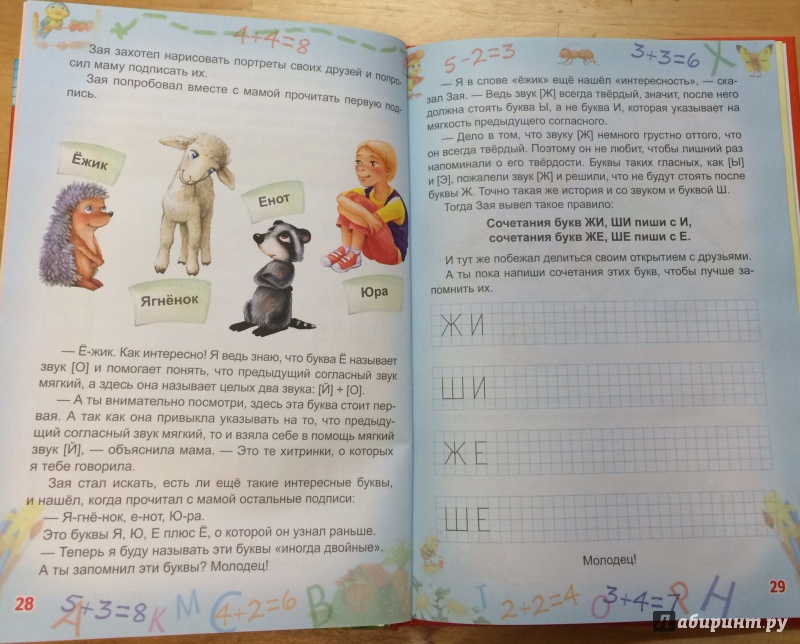 4+4=8
Зая захотел нарисовать портреты своих друзей и попро-
сил маму подписать их.
Зая попробовал вместе с мамой прочитать первую под-
пись.
Ёжик
Енот
Ягнёнок
Юра
— Ё-жик. Как интересно! Я ведь знаю, что буква Ё называет
звук [О] и помогает понять, что предыдущий согласный звук
мягкий, а здесь она называет целых два звука: [Й] + [О].
— А ты внимательно посмотри, здесь эта буква стоит пер-
вая. А так как она привыкла указывать на то, что преды-
дущий согласный звук мягкий, то и взяла себе в помощь мягкий
звук [Й], — объяснила мама. — Это те хитринки, о которых
я тебе говорила.
Зая стал искать, есть ли ещё такие интересные буквы,
и нашёл, когда прочитал с мамой остальные подписи:
— Я-гнё-нок, е-нот, Ю-ра.
Это буквы Я, Ю, Е плюс Ё, о которой он узнал раньше.
— Теперь я буду называть эти буквы «иногда двойные».
А ты запомнил эти буквы? Молодец!
28
5+3=8
А К М С
4+2=6
В
5-2=3
3+3=6
Х
— Я в слове «ёжик» ещё нашёл «интересность», — ска-
зал Зая. — Ведь звук [Ж] всегда твёрдый, значит, после него
должна стоять буква Ы, а не буква И, которая указывает на
мягкость предыдущего согласного.
— Дело в том, что звуку [Ж] немного грустно оттого, что
он всегда твёрдый. Поэтому он не любит, чтобы лишний раз
напоминали о его твёрдости. Буквы таких гласных, как [Ы]
и [Э], пожалели звук [Ж] и решили, что не будут стоять после
буквы Ж. Точно такая же история и со звуком и буквой Ш.
Тогда Зая вывел такое правило:
Сочетания букв ЖИ, ШИ пиши с И,
сочетания букв ЖЕ, ШЕ пиши с Е.
И тут же побежал делиться своим открытием с друзьями.
А ты пока напиши сочетания этих букв, чтобы лучше за-
помнить их.
ЖИ
ШИ
ЖЕ
ШЕ
Молодец!
29
2+2=4
3+4=7
R H
Лабиринт.ру